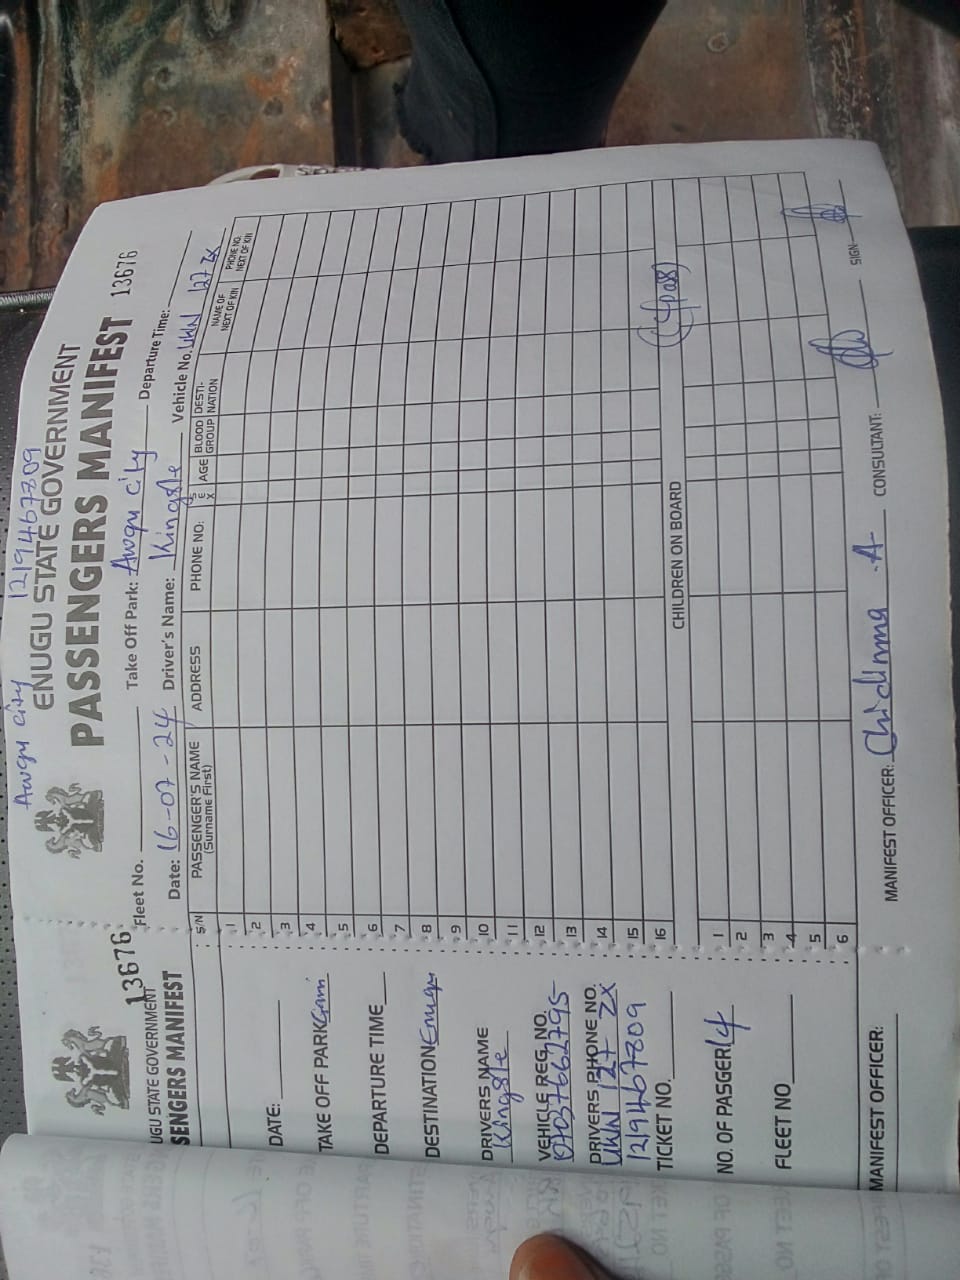 Awgu City 1219467809
ENUGU STATE GOVERNMENT
PASSENGERS MANIFEST 13676
Fleet No. Take Off Park: Awgu City Departure Time:
Date: 16-07-24 Driver's Name: Kingsle Vehicle No. UKN 127 ZX
S/N PASSENGER'S NAME (Surname First) ADDRESS PHONE NO: SEX AGE BLOOD GROUP DESTI-NATION NAME OF NEXT OF KIN PHONE NO: NEXT OF KIN
1
2
3
4
5
6
7
8
9
10
11
12
13
14
15
16
(14pas)
CHILDREN ON BOARD
1
2
3
4
5
6
MANIFEST OFFICER: Chidinma .A CONSULTANT: SIGN:
13676
UGU STATE GOVERNMENT
SENGERS MANIFEST
DATE:
TAKE OFF PARK
DEPARTURE TIME
DESTINATION Enugu
DRIVERS NAME
Kingsle
VEHICLE REG. NO.
07037662795
DRIVERS PHONE NO.
UKN 127 ZX
1219467809
TICKET NO.
NO. OF PASGER 14
FLEET NO
MANIFEST OFFICER: